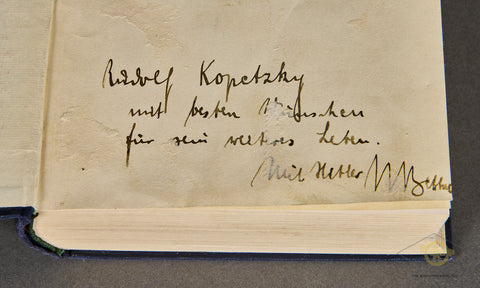 Rudolf Kopetzky
mit besten Wünschen
für sein weiteres Leben.
Heil Hitler